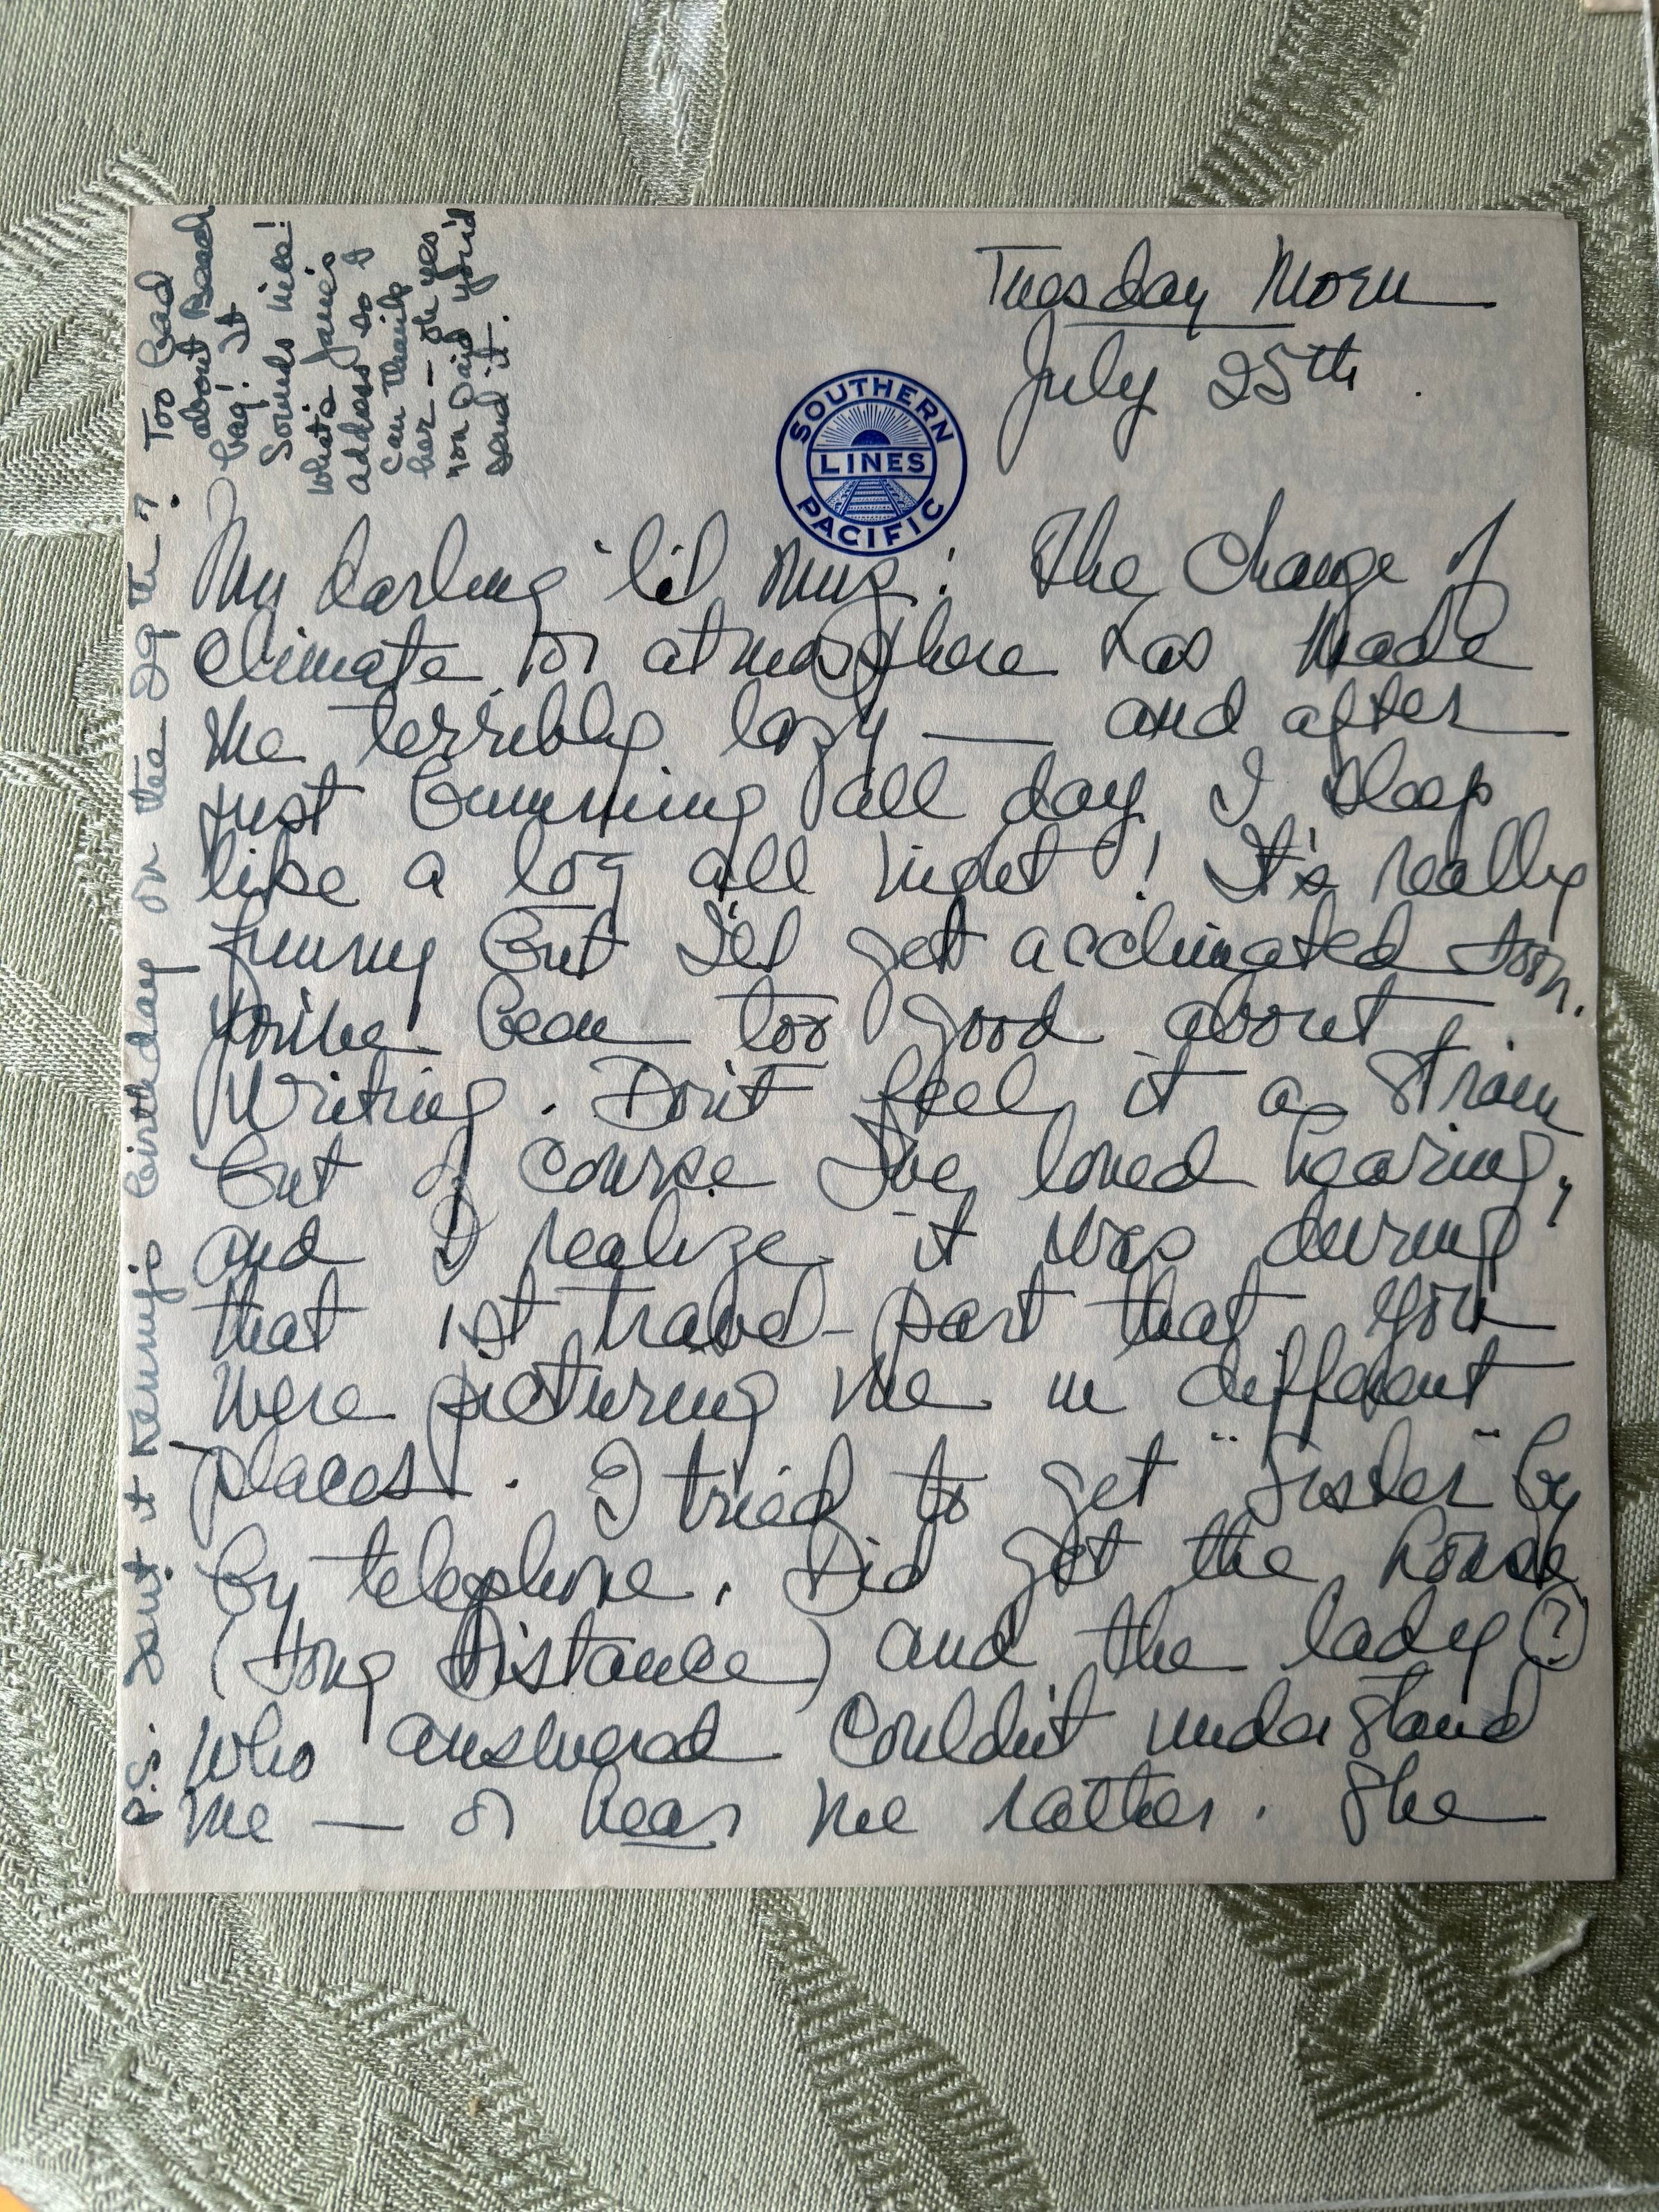 Tuesday Morn
July 25th.
SOUTHERN
LINES
PACIFIC
My darling li'l Mug: The change of
climate or atmosphere has made
me terribly lazy — and after
just bumming all day I sleep
like a log all night! It's really
funny but I'll get acclimated soon.
You've been too good about
writing. Don't feel it a strain
but of course I've loved hearing,
and I realize it was during
that 1st travel-part that you
were picturing me in different
places. I tried to get "Sister" by
by telephone. Did get the house
(Long Distance) and the lady (?)
who answered couldn't understand
me — or hear me rather. She
P.S. Isn't it Kenny's birthday on the 29th?
Too bad
about Beach
bag! It
Sounds nice!
What's Janie's
address so I
can thank
her — oh yes
you said you'd
send it.